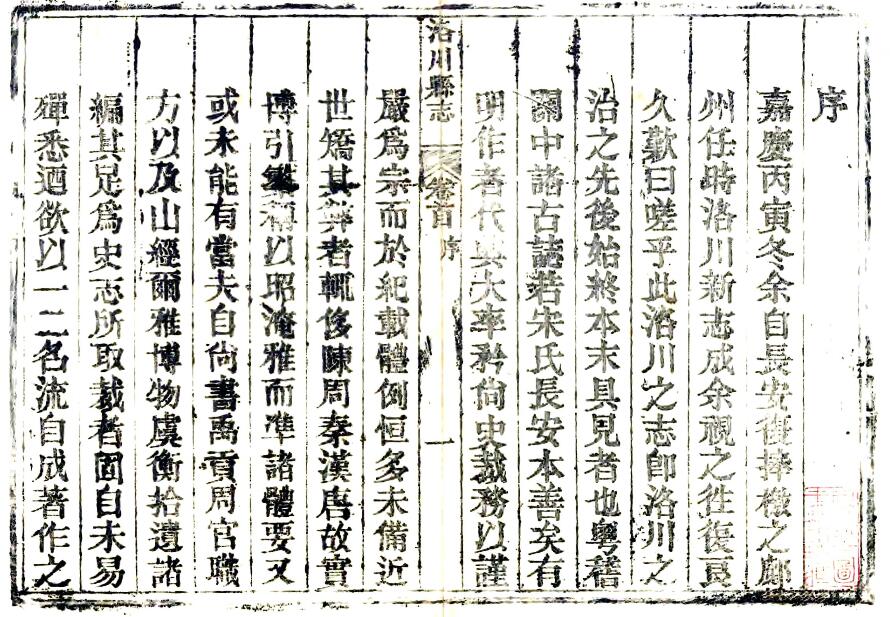 序
嘉慶丙寅冬余自長安復捧檄之鄜
州任時洛川新志成余視之徃復良
久歎曰嗟乎此洛川之志卽洛川之
治之先後始終本末具見者也粵稽
關中諸古誌若宋氏長安本善矣有
明作者代興大率矜尙史裁務以謹
洛川縣志 卷首 序 一
嚴爲宗而於紀載體例恒多未備近
世矯其弊者輒侈陳周秦漢唐故實
博引繁稱以昭淹雅而準諸體要又
或未能有當夫自尙書禹貢周官職
方以及山經爾雅博物虞衡拾遺諸
編其足爲史志所取裁者固自未易
殫悉迺欲以一二名流自成著作之